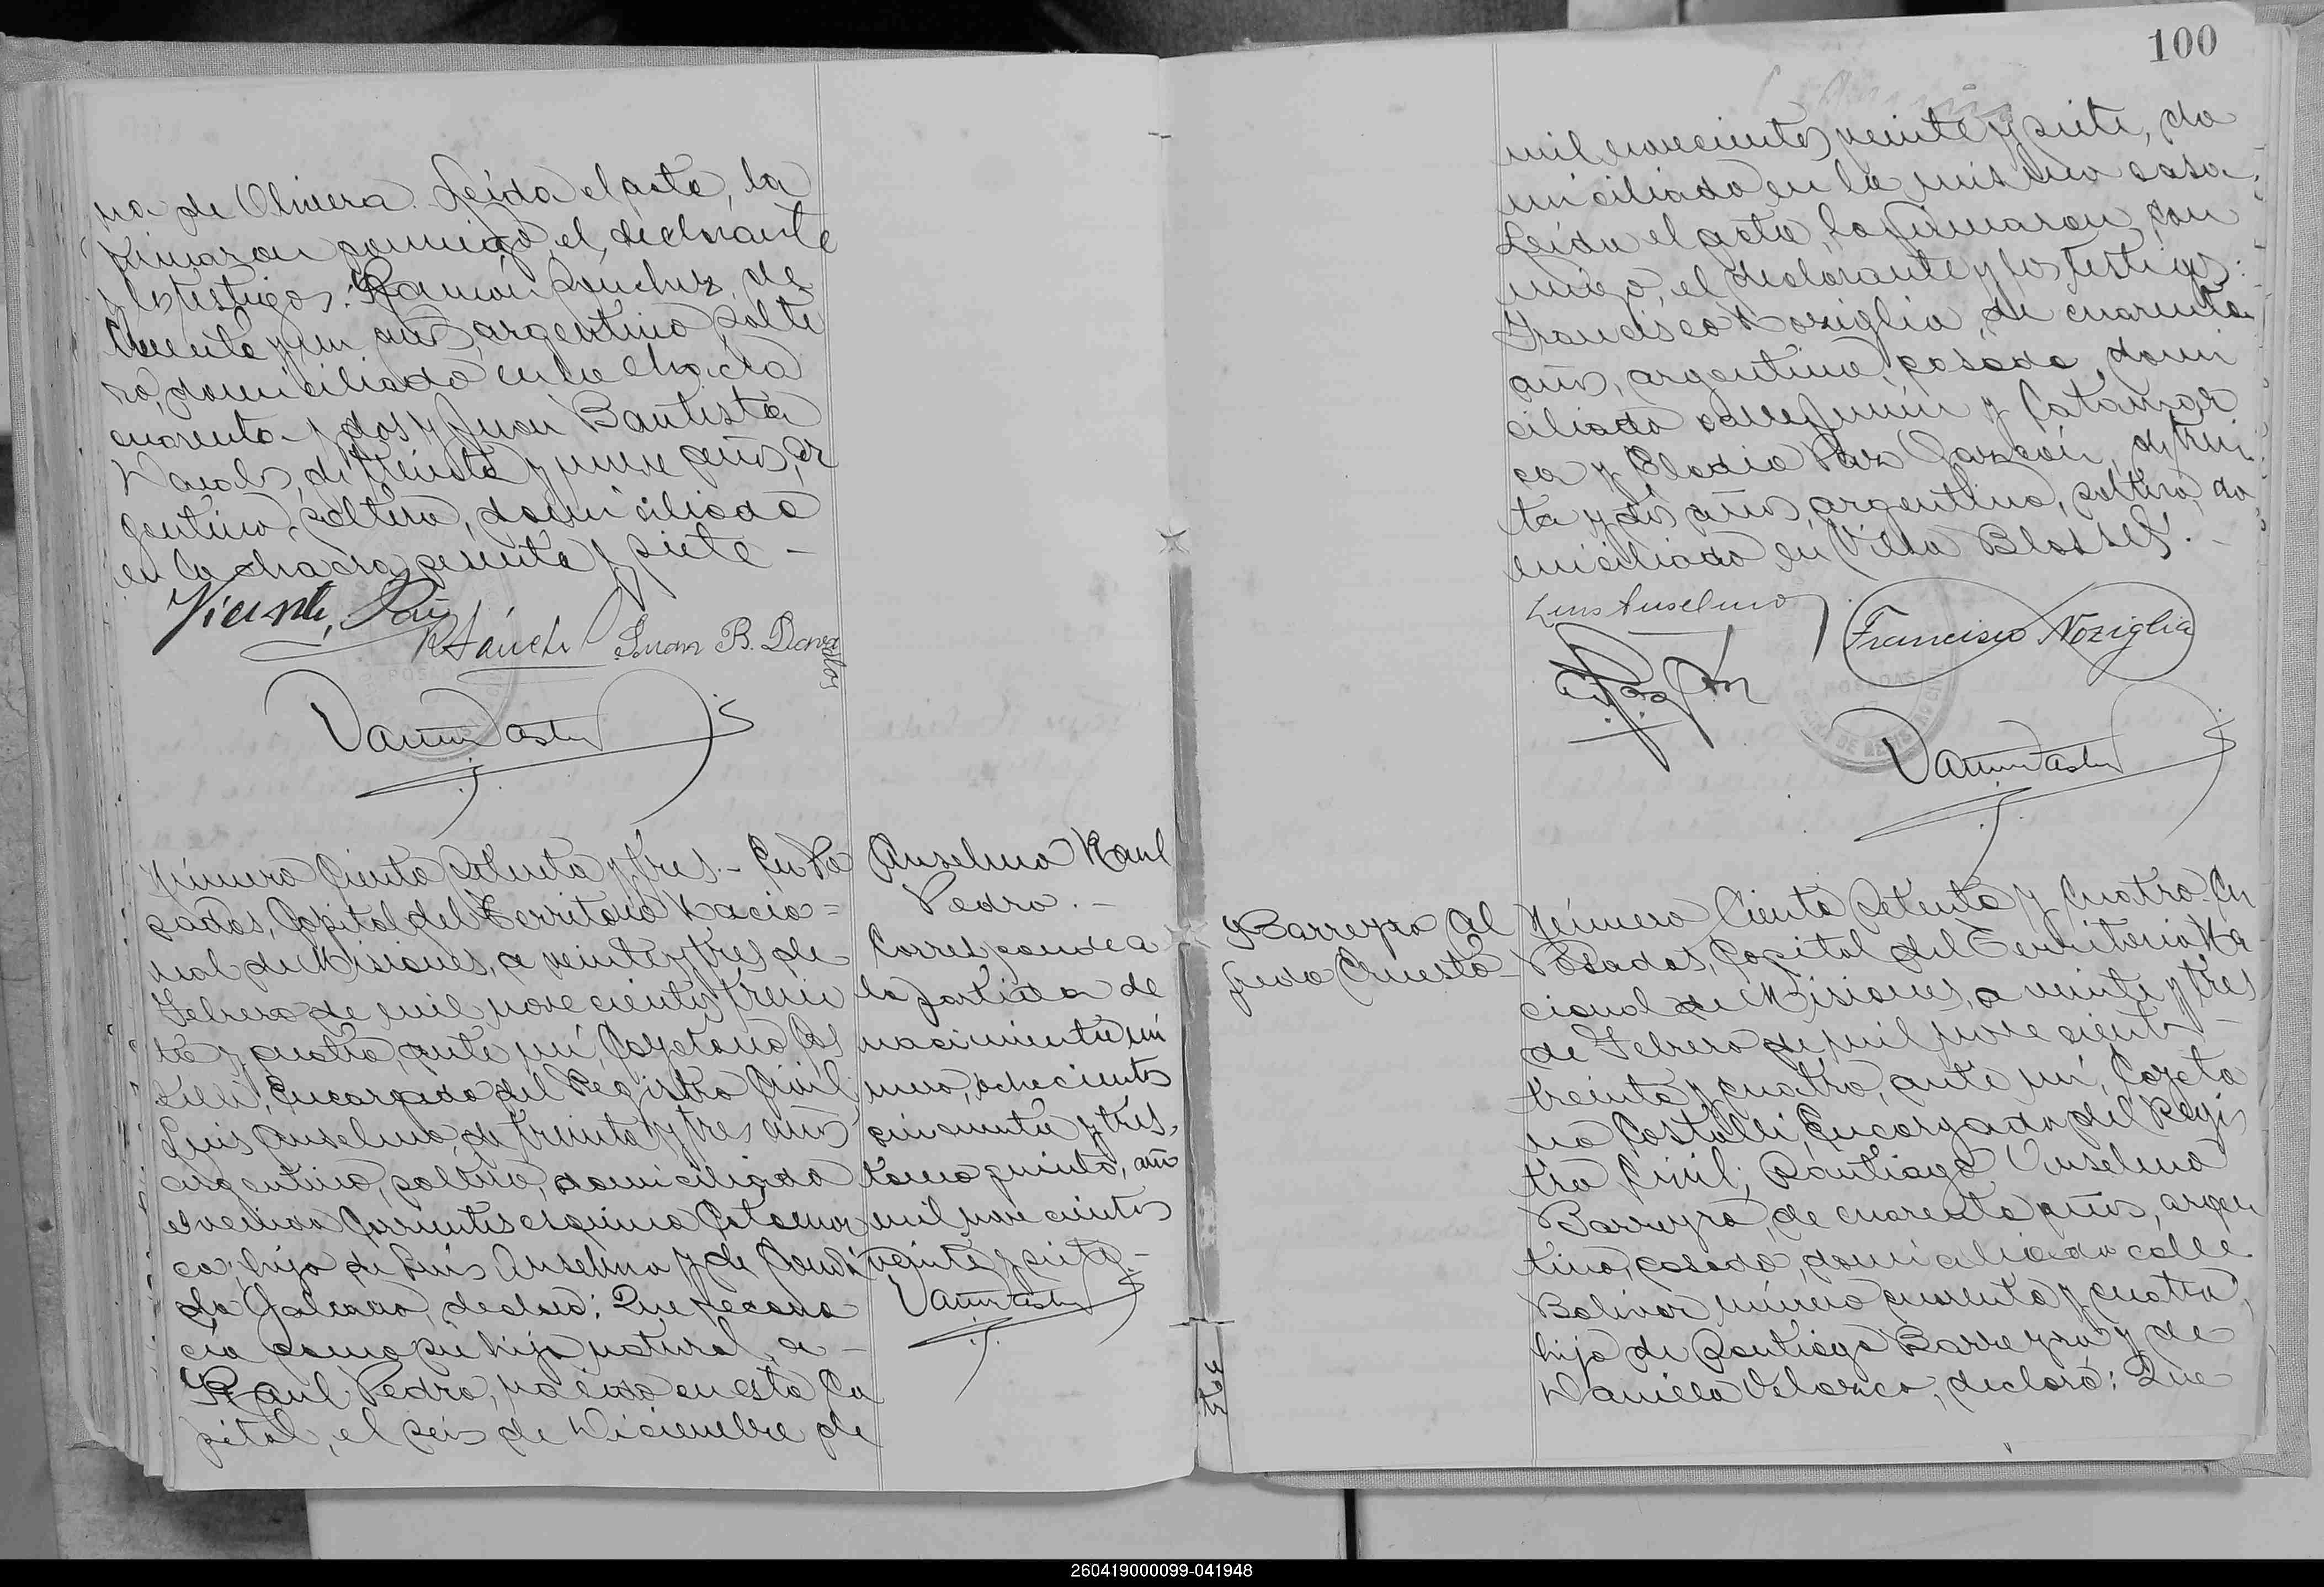 na de Olivera. Leída el acta, la
firmaron conmigo, el declarante
y los testigos: Ramón Sánchez, de
treinta y un años, argentino, solte
ro, domiciliado en la chacra
cuarenta y dos y Juan Bautista
Davalos, de treinta y nueve años, ar
gentino, soltero, domiciliado
en la chacra sesenta y siete -
Vicente
RSánchez Juan B. Davalos
Número Ciento Setenta y tres.- En Po
sadas, Capital del Territorio Nacio=
nal de Misiones, a veinte y tres de
Febrero de mil novecientos trein
ta y cuatro, ante mí, Cayetano Cas
telli, Encargado del Registro Civil
Luis Anselmo, de treinta y tres años
argentino, soltero, domiciliado
avenida Corrientes esquina Catamar
ca, hijo de Luis Anselmo y de
declaró: Que recono
cía como su hijo natural, a -
Raul Pedro, nacido en esta Ca
pital, el seis de Diciembre de
Anselmo Raul
Pedro.-
Corresponde a
la partida de
nacimiento nú
mero, ochocientos
cincuenta y tres,
tomo quinto, año
mil novecientos
veinte y siete.-
100
mil novecientos veinte y siete, do
miciliado en la misma casa.
Leída el acta, la firmaron con
migo, el declarante y los testigos:
Francisco Noziglia, de cuarenta
años, argentino, casado, domi
ciliado calle Junín y Catamar
ca y Eladio Paz Garzón, de trein
ta y dos años, argentino, soltero, do
miciliado en Villa Blosset.-
Luis Anselmo
Francisco Noziglia
Barreyro Al
fredo Ernesto
Número Ciento Setenta y Cuatro.- En
Posadas, Capital del Territorio Na
cional de Misiones, a veinte y tres
de Febrero de mil novecientos
treinta y cuatro, ante mí, Cayeta
no Castelli, Encargado del Regis
tro Civil; Santiago Anselmo
Barreyro, de cuarenta años, argen
tino, casado, domiciliado calle
Bolivar número cuarenta y cuatro,
hijo de Santiago Barreyro y de
declaró: Que
260419000099-041948